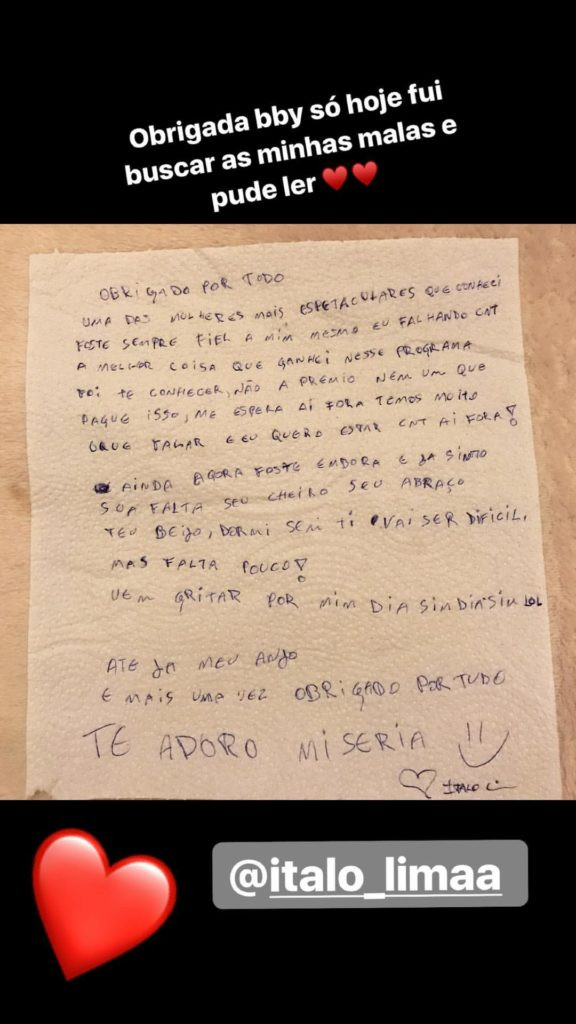 Obrigada bby só hoje fui
buscar as minhas malas e
pude ler ♥️♥️
OBRIGADO POR TODO
UMA DAS MULHERES MAIS ESPETACULARES QUE CONHECI
FOSTE SEMPRE FIEL A MIM MESMO EU FALHANDO CNT
A MELHOR COISA QUE GANHEI NESSE PROGRAMA
FOI TE CONHECER, NÃO A PREMIO NEM UM QUE
PAGUE ISSO, ME ESPERA AÍ FORA TEMOS MUITO
QUE FALAR E EU QUERO ESTAR CNT AI FORA!
AINDA AGORA FOSTE EMBORA E JA SINTO
SUA FALTA SEU CHEIRO SEU ABRAÇO
TEU BEIJO, DORMI SEM TI VAI SER DIFICIL,
MAS FALTA POUCO!
VEM GRITAR POR MIM DIA SIM DIA SIM LOL
ATE JA MEU ANJO
E MAIS UMA VEZ OBRIGADO POR TUDO
TE ADORO MISERIA
ITALO
@italo_limaa